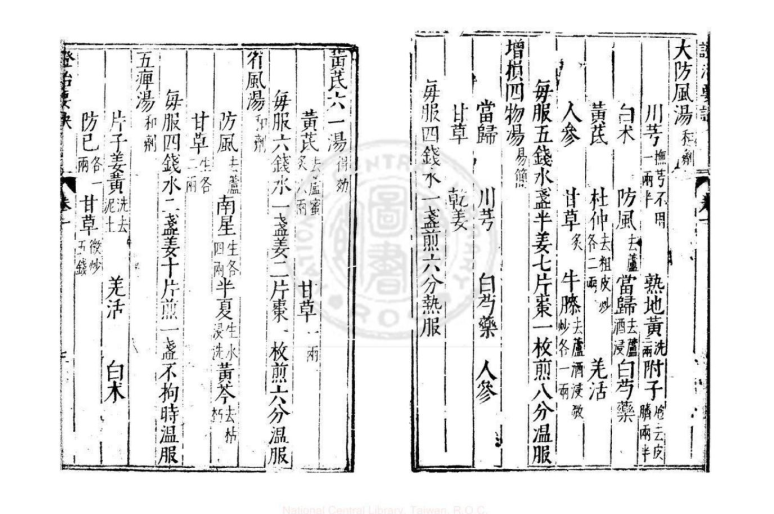 大防風湯和劑
川芎撫芎不用一兩半 熟地黃洗二兩 附子炮去皮臍兩半
白朮 防風去蘆 當歸去蘆酒浸 白芍藥
黃芪 杜仲去粗皮炒各二兩 羌活
人參 甘草炙 牛膝去蘆酒浸炒各一兩
每服五錢水盞半姜七片棗一枚煎八分溫服
增損四物湯易簡
當歸 川芎 白芍藥 人參
甘草 乾姜
每服四錢水一盞煎六分熱服
卷一
黃芪六一湯得効
黃芪去蘆蜜炙六兩 甘草一兩
每服六錢水一盞姜二片棗一枚煎六分溫服
省風湯和劑
防風去蘆 南星生各四兩 半夏生水浸洗 黃芩去枯朽
甘草生各二兩
每服四錢水二盞姜十片煎一盞不拘時溫服
五痺湯和劑
片子姜黃洗去泥土 羌活 白朮
防已各一兩 甘草微炒五錢
證治要訣 卷一
National Central Library, Taiwan, R.O.C.